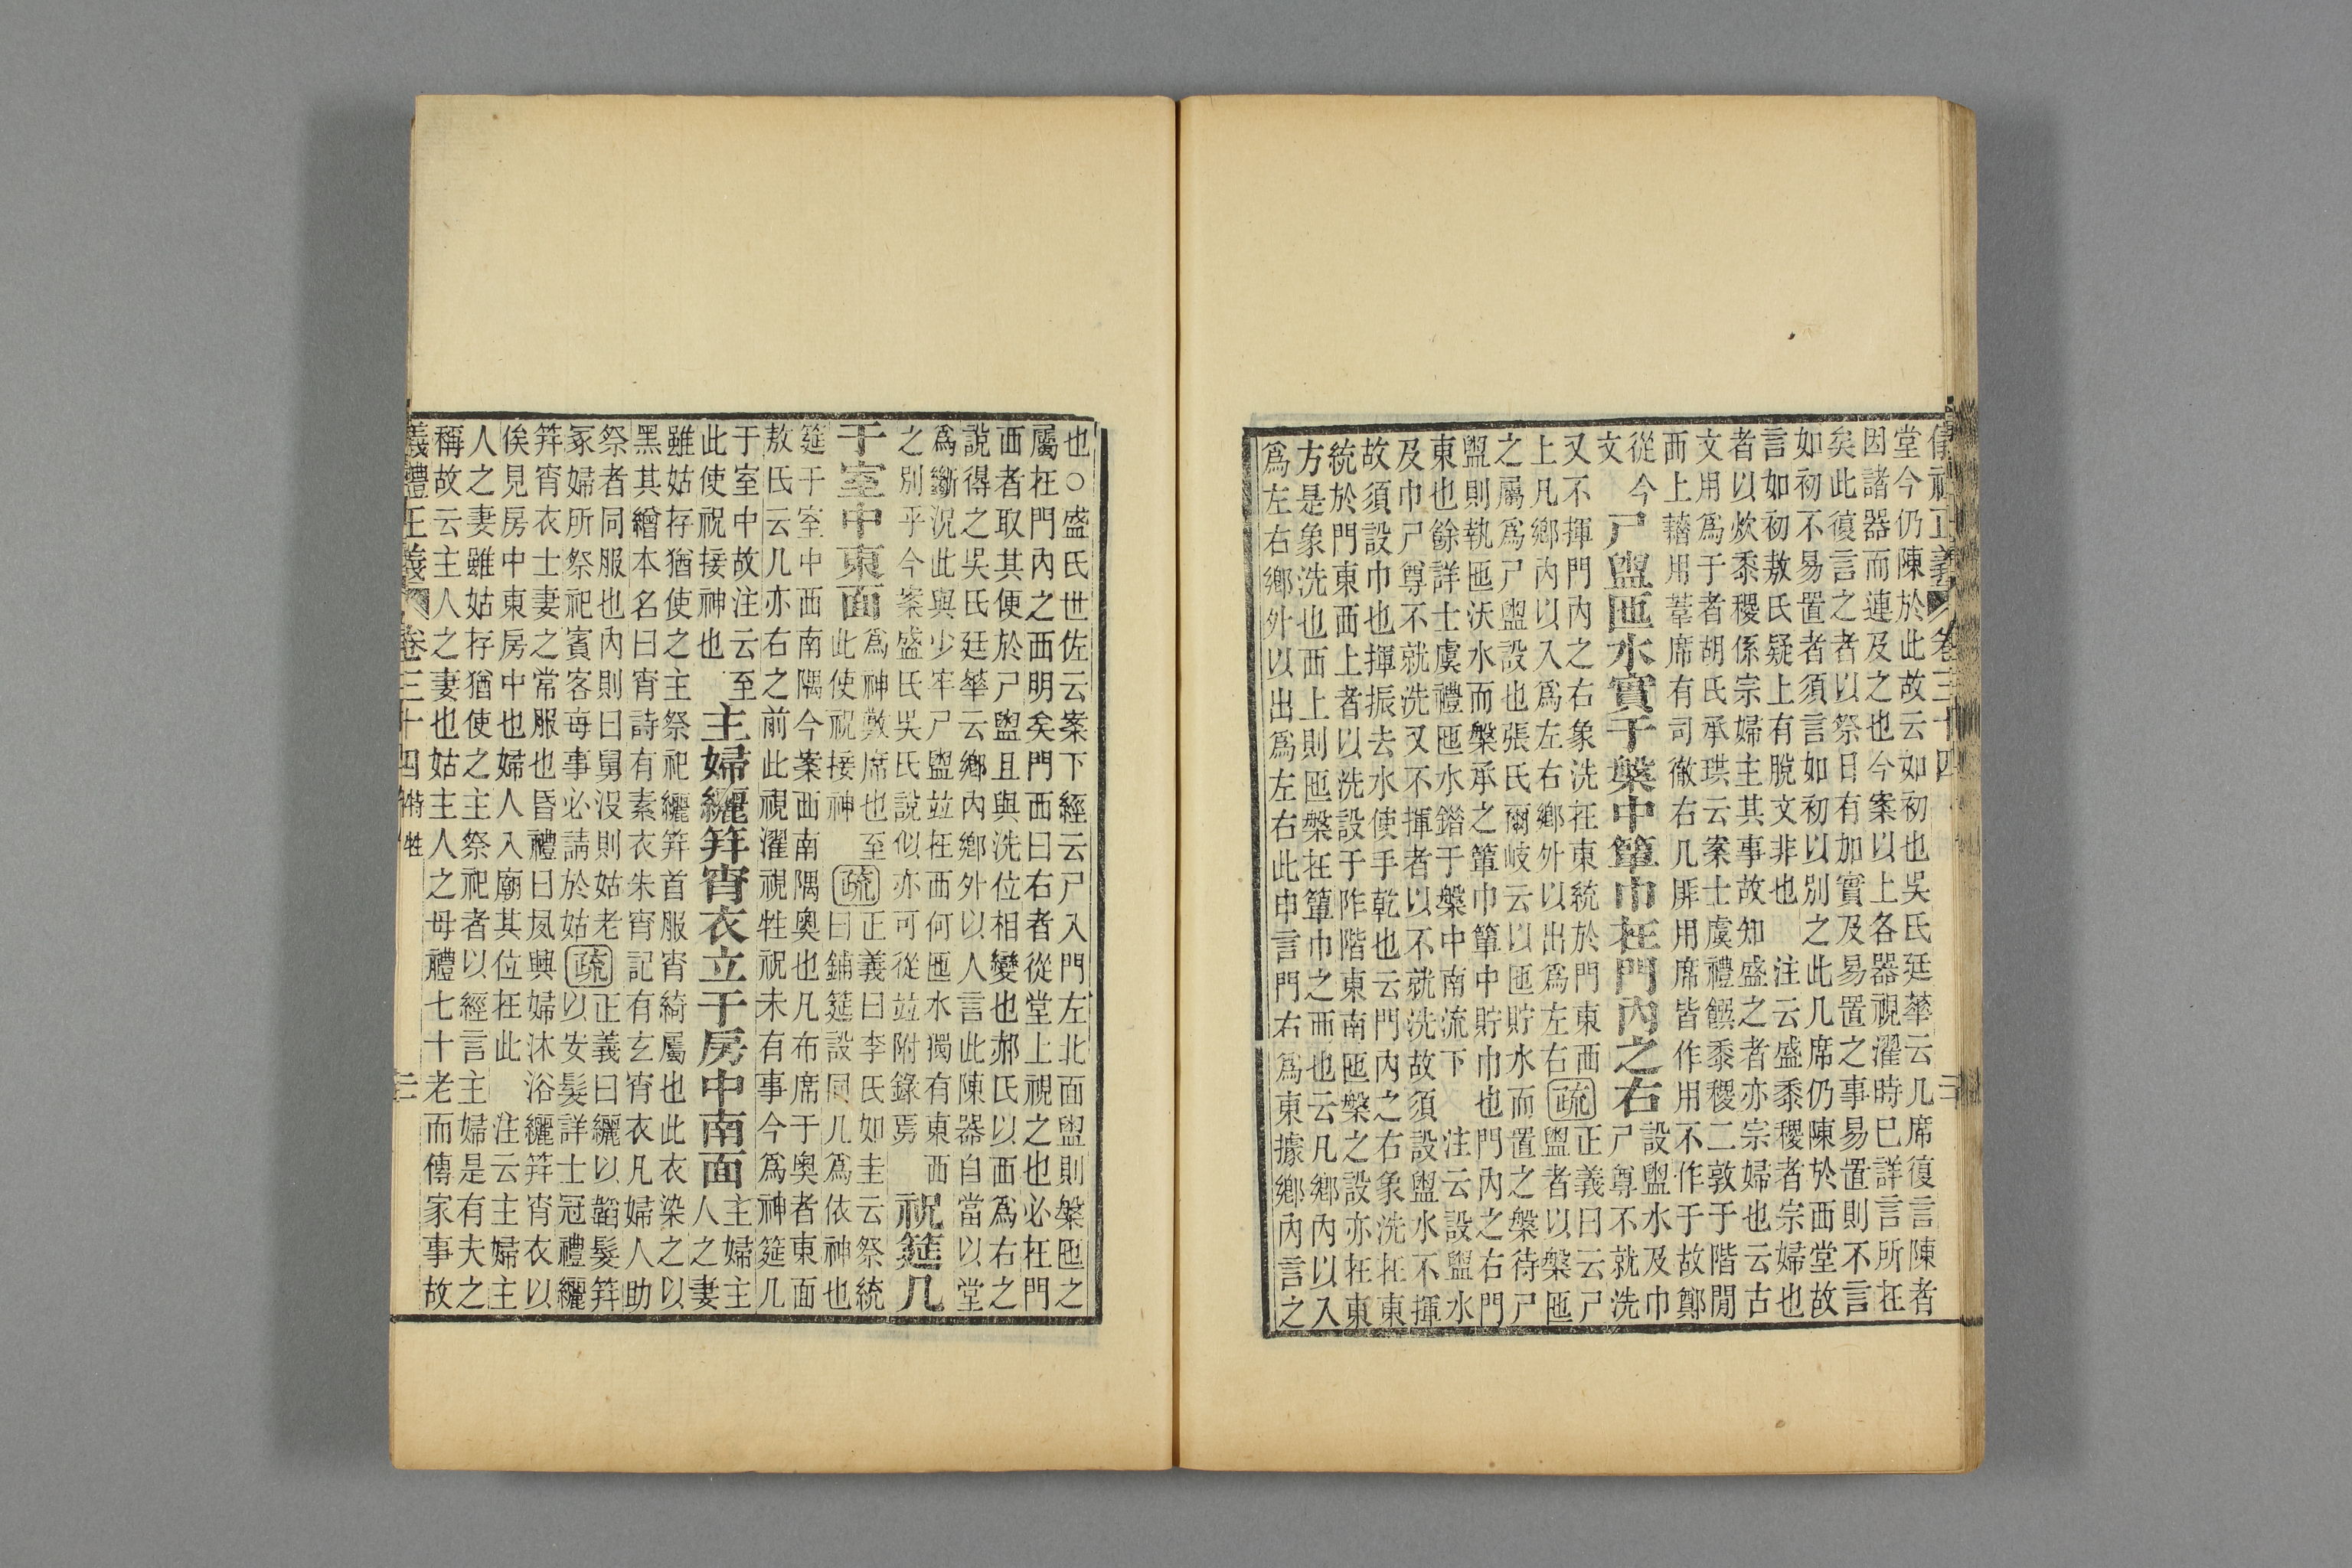 儀禮正義 卷三十四 二
堂今仍陳於此故云如初也吳氏廷華云几席復言陳者
因諸器而連及之也今案以上各器視濯時已詳言所在
矣此復言之者以祭日有加實及易置之事易置則不言
如初不易置者須言如初以別之此几席仍陳於西堂故
言如初敖氏疑上有脫文非也 注云盛黍稷者宗婦也
者以炊黍稷係宗婦主其事故知盛之者亦宗婦也云古
文用爲于者胡氏承珙云案士虞禮饌黍稷二敦于階閒
西上藉用葦席有司徹右几厞用席皆作用不作于故鄭
從今
文
尸盥匜水實于槃中簞巾在門內之右
設盥水及巾
尸尊不就洗
又不揮門內之右象洗在東統於門東西
上凡鄉內以入爲左右鄉外以出爲左右
疏
正義曰云尸
盥者以槃匜
之屬爲尸盥設也張氏爾岐云以匜貯水而置之槃待尸
盥則執匜沃水而槃承之簞巾簞中貯巾也門內之右門
東也餘詳士虞禮匜水錯于槃中南流下 注云設盥水
及巾尸尊不就洗又不揮者以不就洗故須設盥水不揮
故須設巾也揮振去水使手乾也云門內之右象洗在東
統於門東西上者以洗設于阼階東南匜槃之設亦在東
方是象洗也西上則匜槃在簞巾之西也云凡鄉內以入
爲左右鄉外以出爲左右此申言門右爲東據鄉內言之
也○盛氏世佐云案下經云尸入門左北面盥則槃匜之
屬在門內之西明矣門西曰右者從堂上視之也必在門
西者取其便於尸盥且與洗位相變也郝氏以西爲右之
說得之吳氏廷華云鄉內鄉外以人言此陳器自當以堂
爲斷況此與少牢尸盥竝在西何匜水獨有東西
之別乎今案盛氏吳氏說似亦可從竝附錄焉
祝筵几
于室中東面
爲神敷席也至
此使祝接神
疏
正義曰李氏如圭云祭統
曰鋪筵設同几爲依神也
筵于室中西南隅今案西南隅奧也凡布席于奧者東面
敖氏云几亦右之前此視濯視牲祝未有事今爲神筵几
于室中故注云至
此使祝接神也
主婦纚笄宵衣立于房中南面
主婦主
人之妻
雖姑存猶使之主祭祀纚笄首服宵綺屬也此衣染之以
黑其繒本名曰宵詩有素衣朱宵記有玄宵衣凡婦人助
祭者同服也內則曰舅沒則姑老
冢婦所祭祀賓客每事必請於姑
疏
正義曰纚以韜髮笄
以安髮詳士冠禮纚
笄宵衣士妻之常服也昏禮曰夙興婦沐浴纚笄宵衣以
俟見房中東房中也婦人入廟其位在此 注云主婦主
人之妻雖姑存猶使之主祭祀者以經言主婦是有夫之
稱故云主人之妻也姑主人之母禮七十老而傳家事故
儀禮正義 卷三十四 特牲